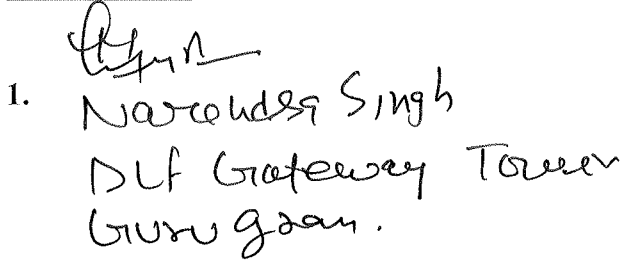 1.
Narendra Singh
DLF Gateway Tower
Gurugram.